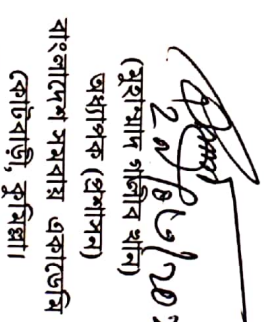 (মুহাম্মাদ গালীব খান)
অধ্যাপক (প্রশাসন)
বাংলাদেশ সমবায় একাডেমি
কোটবাড়ী, কুমিল্লা।